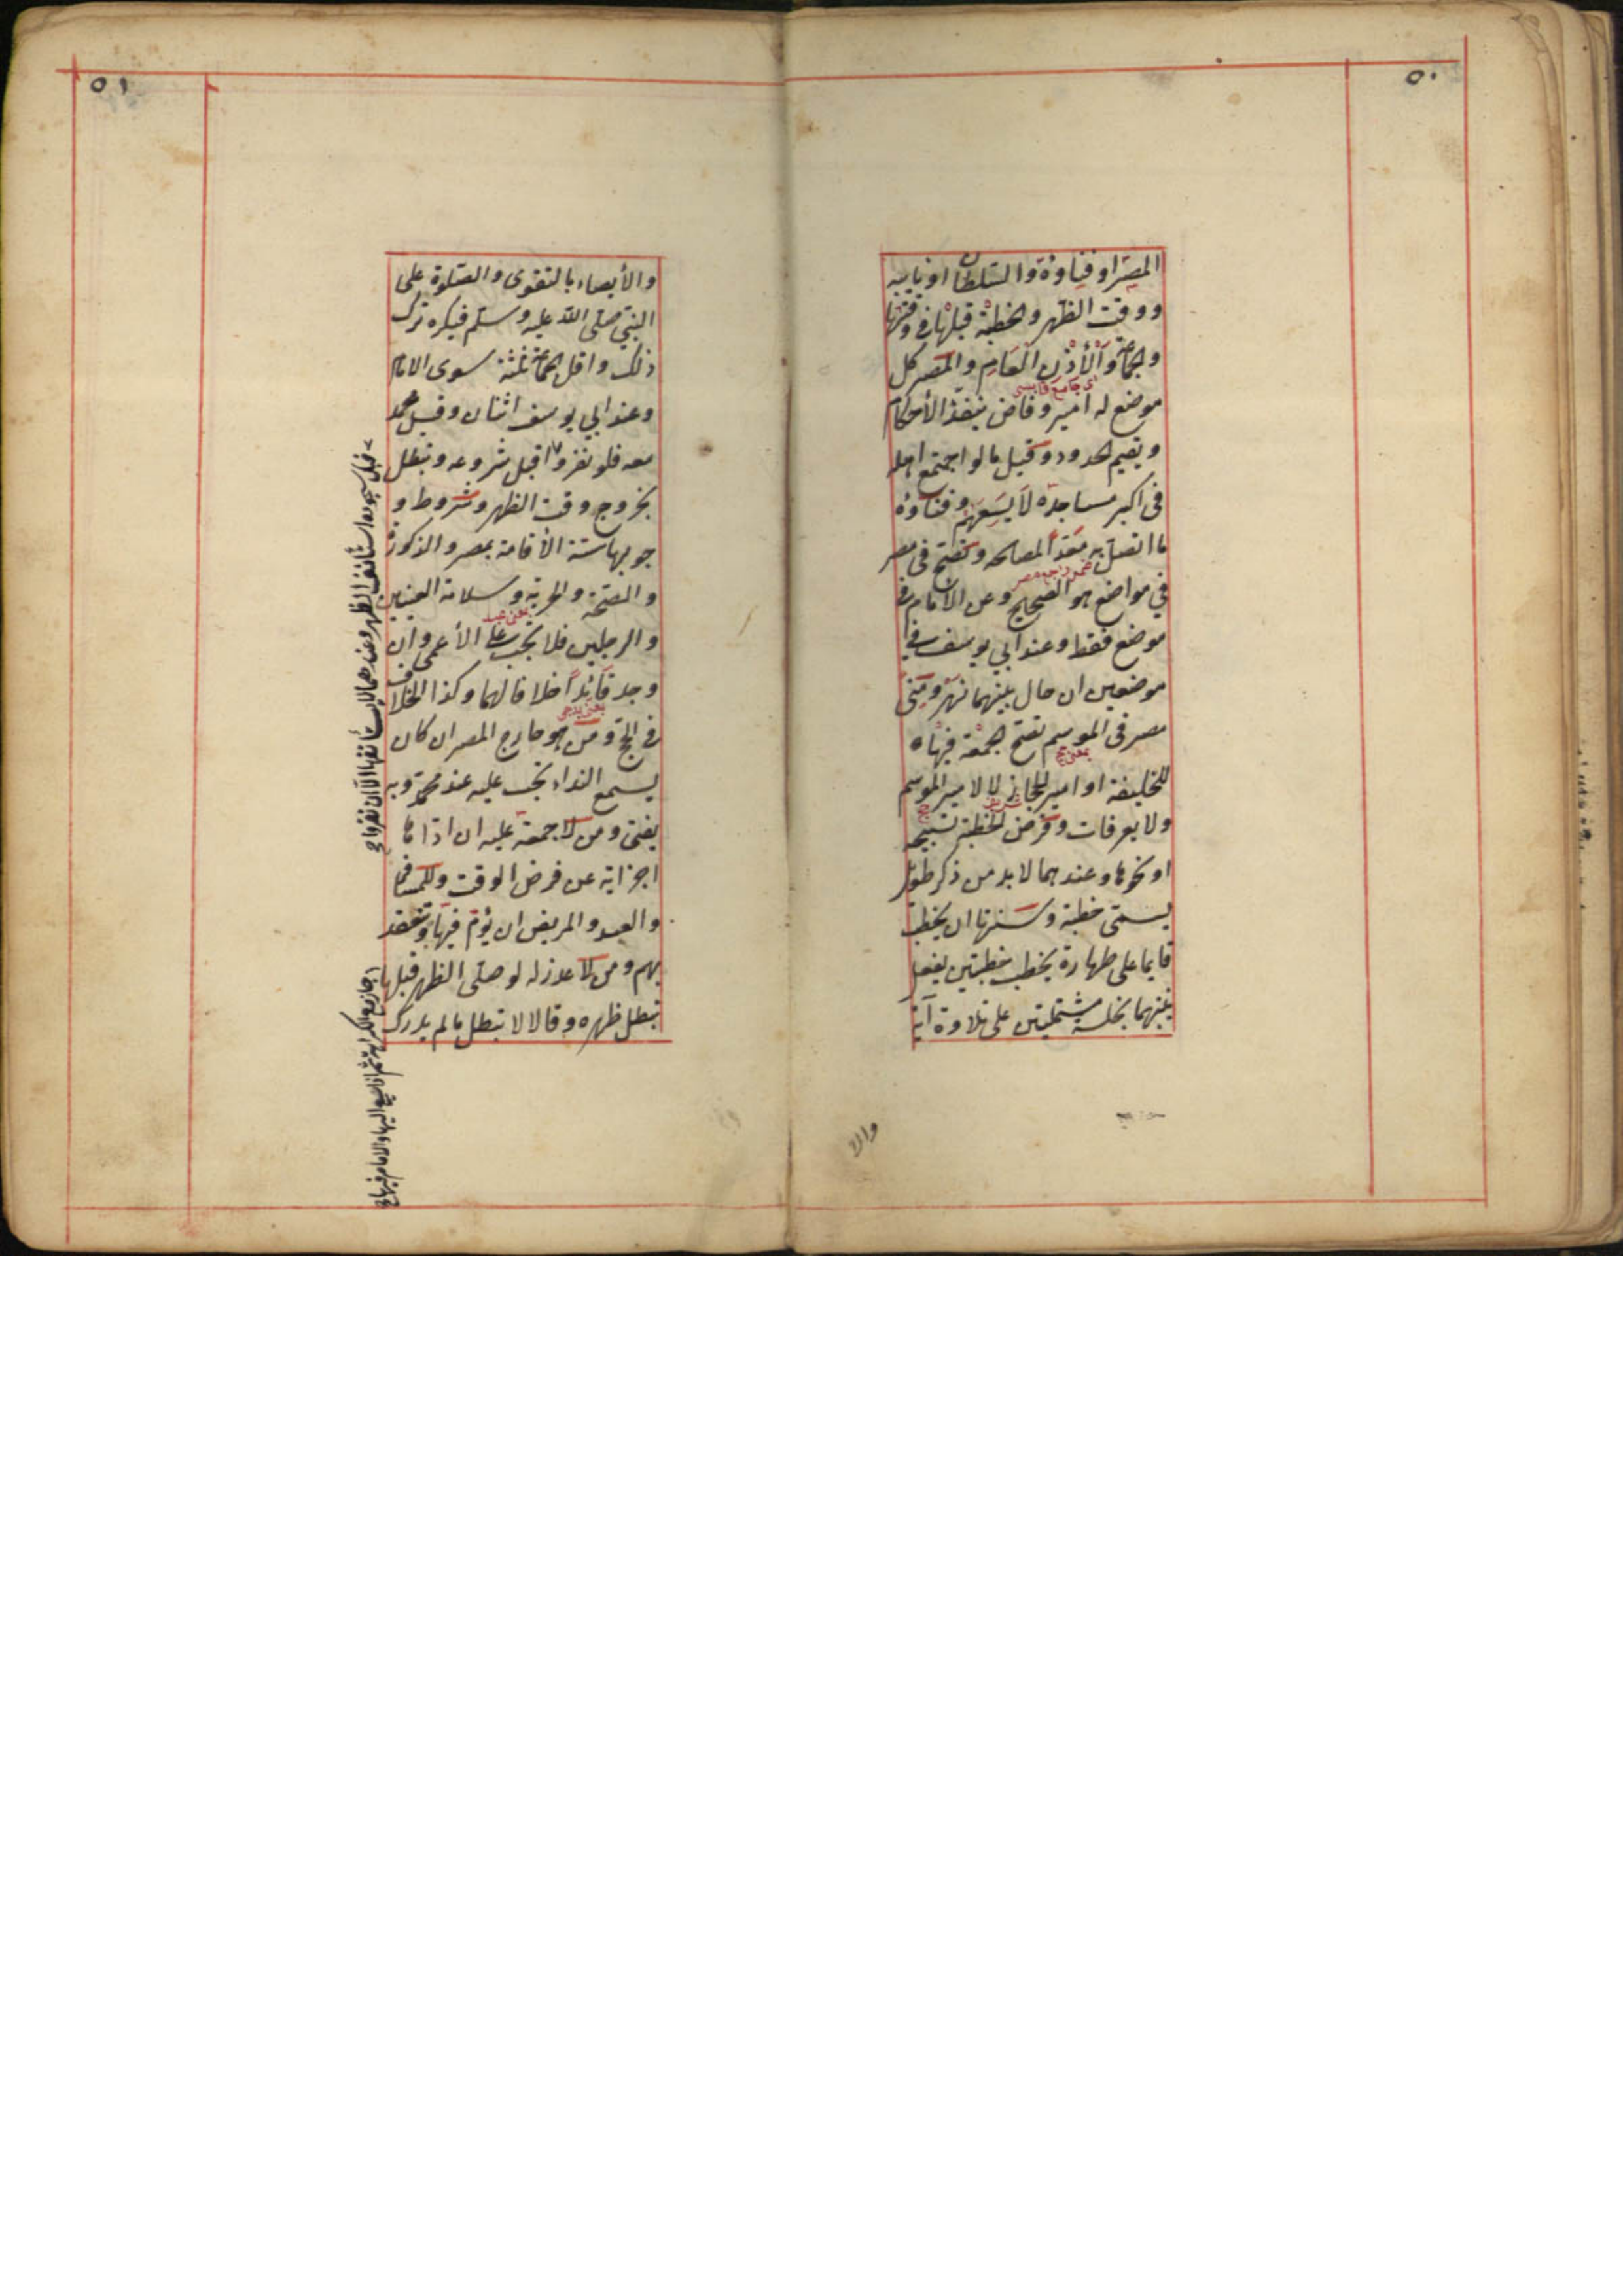 ٥٠
المصر او فناوءة والسلطان او نايبه
ووقت الظهر والخطبة قبلها في وقتها
والجماعة والأذن العام والمصر كل
موضع له امير وقاض ينفذ الأحكام
ويقيم الحدود وقيل ما لو اجتمع اهله
فى اكبر مساجده لا يسعهم وفناؤه
ما اتصل به معداً لمصالحه وتصح فى مصر
في مواضع هو الصحيح وعن الامام في
موضع فقط وعند ابي يوسف في
موضعين ان حال بينهما نهر ومنى
مصر فى الموسم تصح الجمعة فيها
للخليفة او امير الحجاز لا لامير الموسم
ولا بعرفات وفرض الخطبة تسبيحة
او نحوها وعندهما لا بد من ذكر طويل
يسمى خطبة وسنتها ان يخطب
قايما على طهارة يخطب خطبتين يفصل
بينهما بجلسة مشتملتين على تلاوة آية
والا
٥١
والأيصاء بالتقوى والصلوة على
النبي صلى الله عليه وسلم فيكره ترك
ذلك واقل الجماعة ثلثة سوى الامام
وعند ابي يوسف اثنان وقيل محمد
معه فلو نفروا قبل شروعه وتبطل
بخروج وقت الظهر وشروط و
جوبها ستة الأقامة بمصر والذكورة
والصحة والحرية وسلامة العينين
والرجلين فلا تجب على الأعمى وان
وجد قائداً خلافا لهما وكذا الخلاف
في الحج ومن هو خارج المصر ان كان
يسمع النداء تجب عليه عند محمد وبه
يفتى ومن لا جمعة عليه ان اداها
اجزاته عن فرض الوقت وللمسافر
والعبد والمريض ان يؤم فيها وتنعقد
بهم ومن لا عذر له لو صلى الظهر قبلها
تبطل ظهره وقالا لا تبطل ما لم يدرك